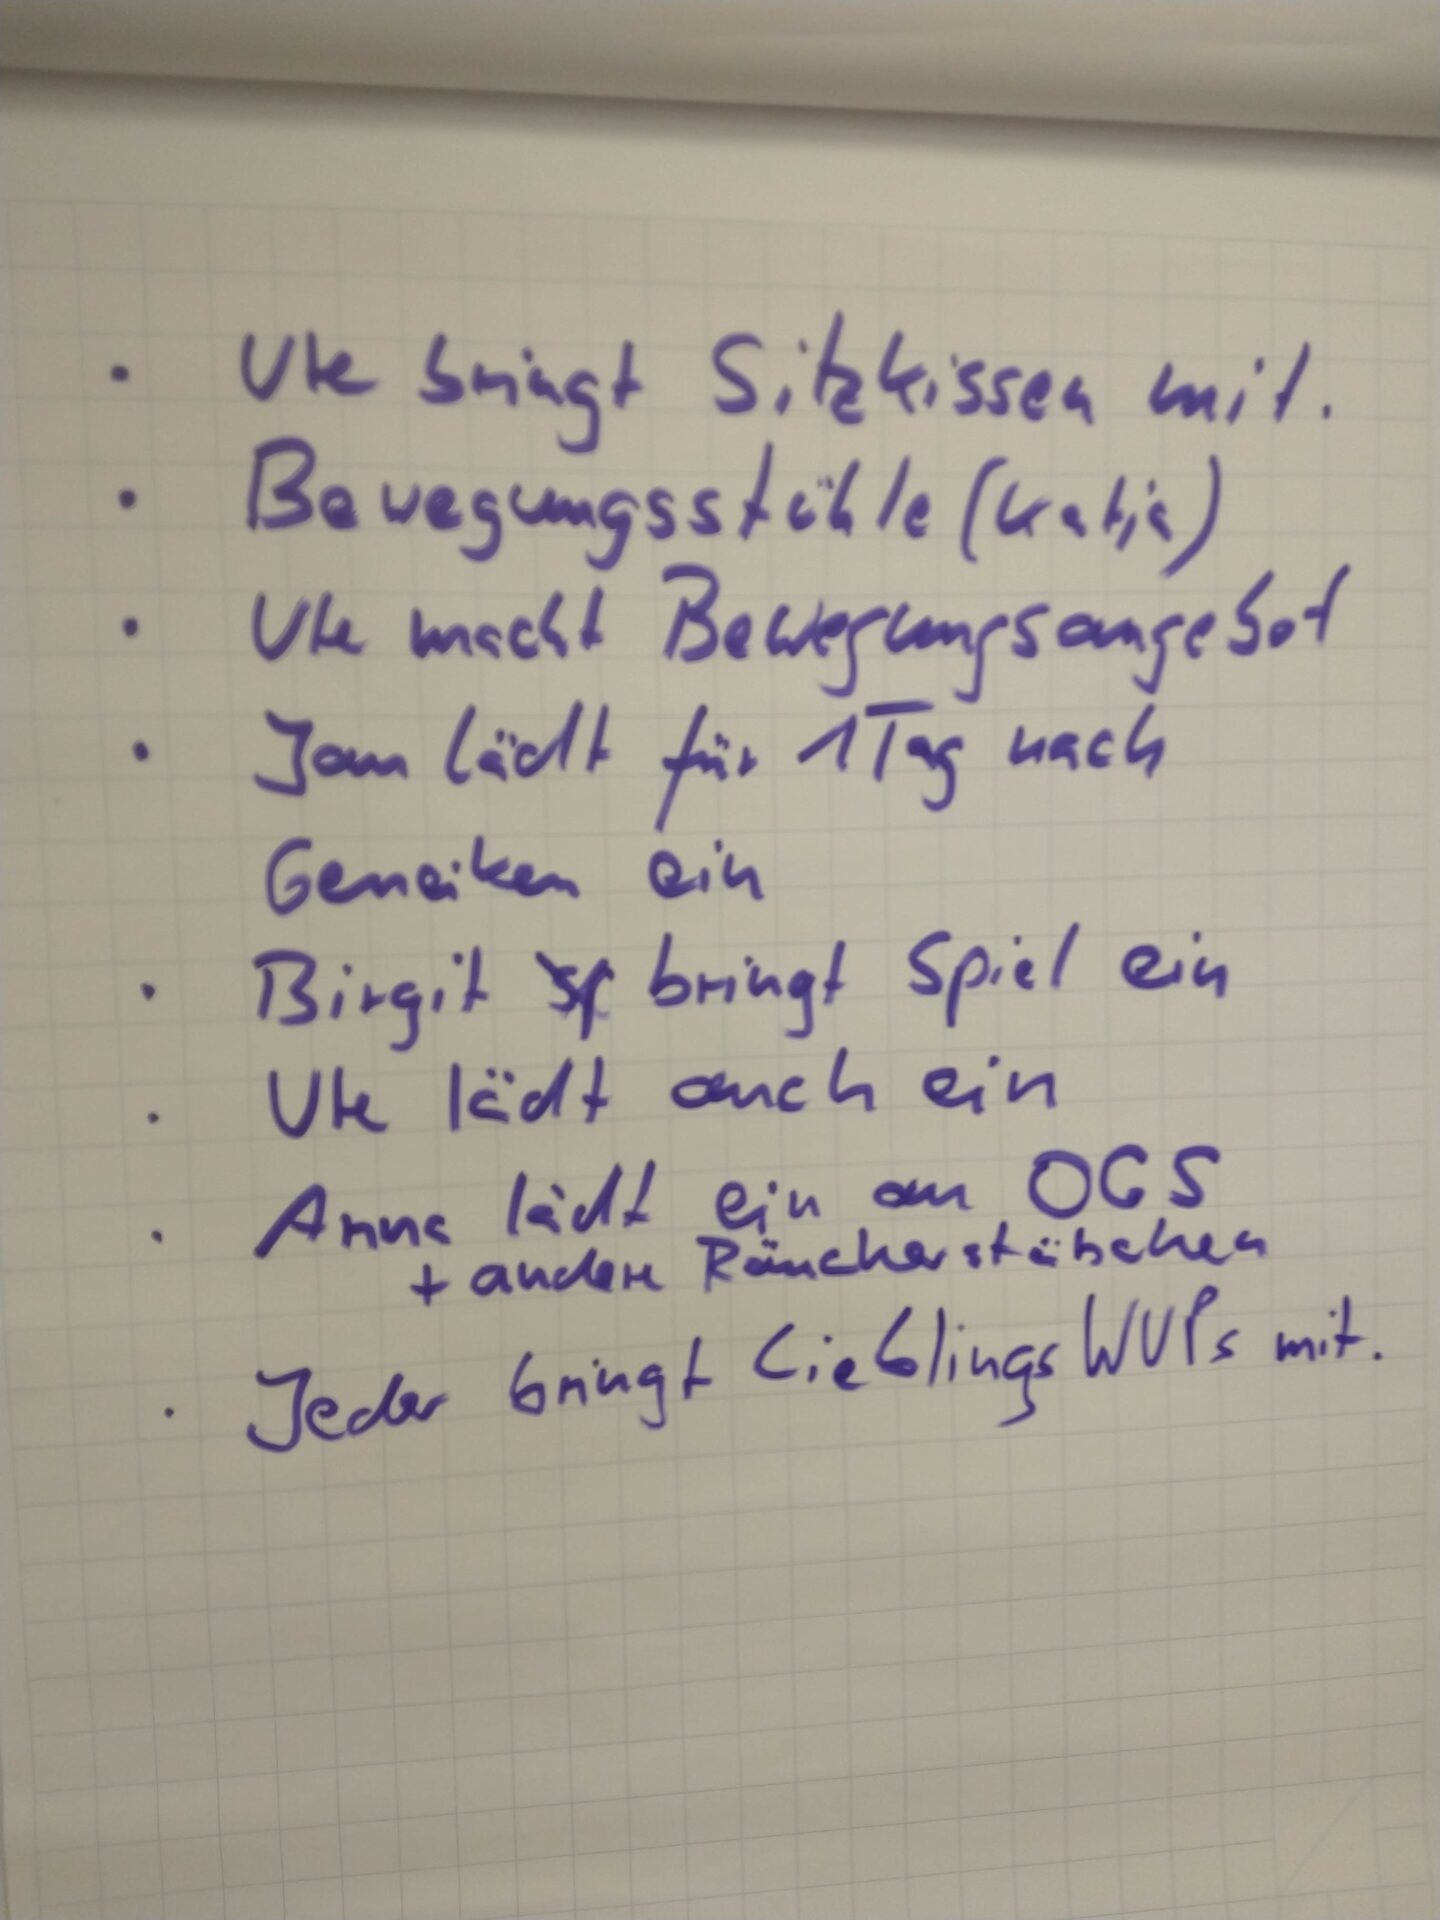 · Ute bringt Sitzkissen mit.
· Bewegungsstühle (Katja)
· Ute macht Bewegungsangebot
· Jan lädt für 1 Tag nach
ein
· Birgit bringt Spiel ein
· Ute lädt auch ein
· Anna lädt ein an OGS
+ andere Räucherstäbchen
· Jeder bringt LieblingsWUPs mit.